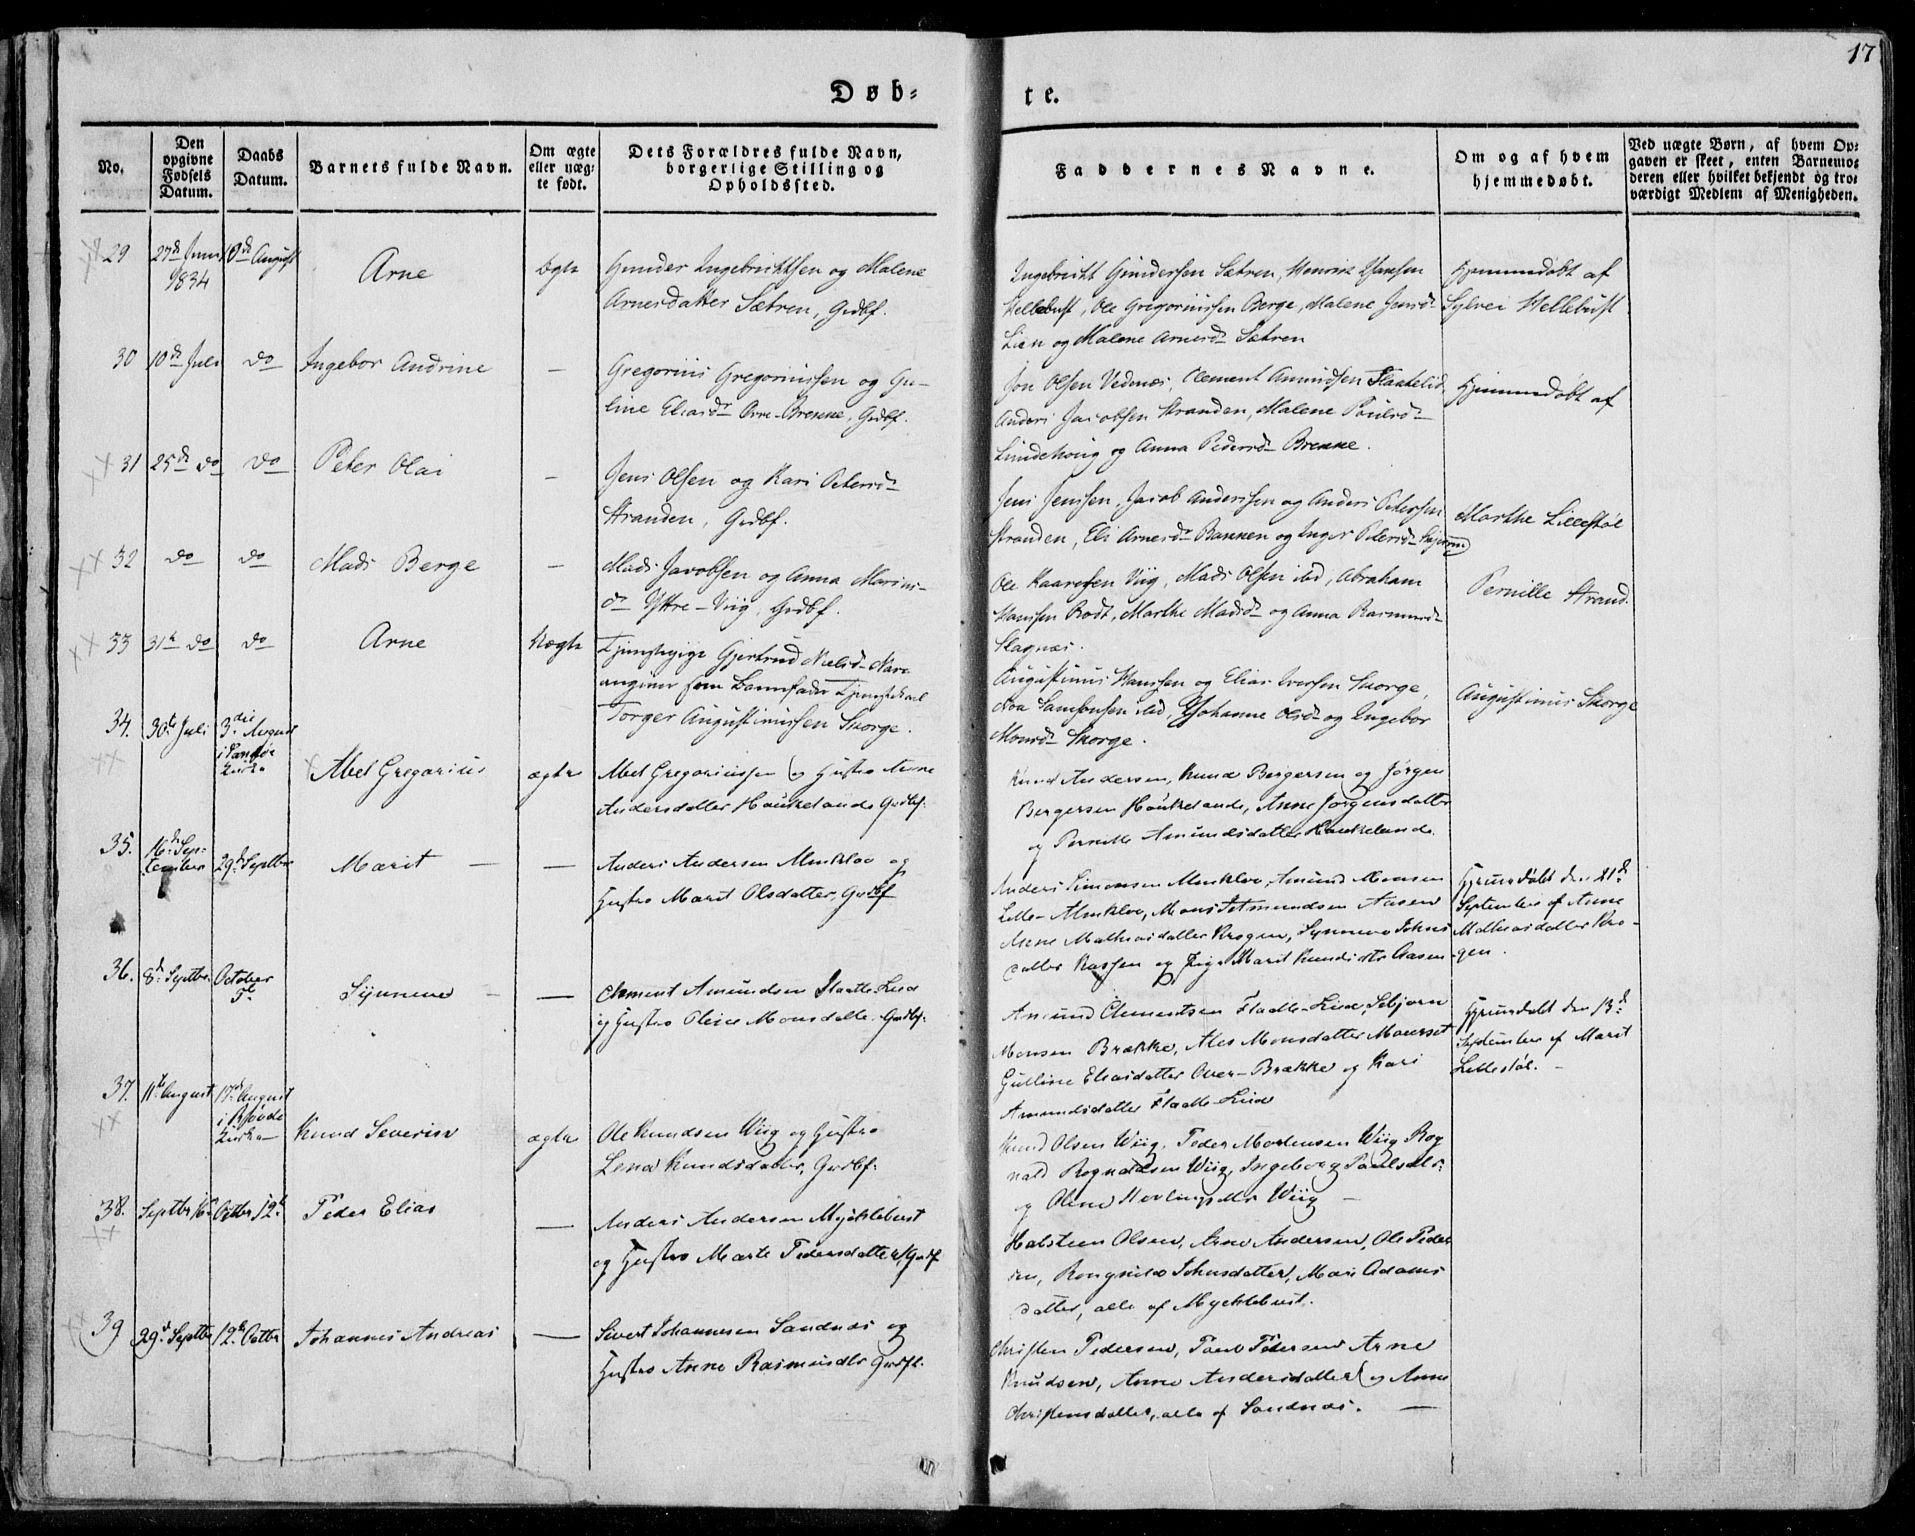 17
Døb-
te.
No.
Den opgivne Fødsels Datum.
Daabs Datum.
Barnets fulde Navn.
Om ægte eller uægte født.
Dets Forældres fulde Navn, borgerlige Stilling og Opholdssted.
Faddernes Navne.
Om og af hvem hjemmedøbt.
Ved uægte Børn, af hvem Opgaven er skeet, enten Barnemoderen eller hvilket bekjendt og troværdigt Medlem af Menigheden.
29 27de Juni 1834 August Arne ægte
Gunder Ingebrichtsen og Malene
Arnesdatter Sætren, Grdbf.
Ingebricht Gundersen Sætren, Hansen
Hellebust, Ole Gregoriussen Berge, Malene Jensd.
Lien og Malene Arnesd. Sætren
Hjemmedøbt af
Sylvei Hellebust
30 10de Juli do Ingebor Andrine —
Gregorius Gregoriussen og Gu-
line Eliasd. Brenne, Grdbf.
Jon Olsen Vednæs, Clement Amundsen
Anders Jacobsen Stranden, Malene Poulsd.
og Anna Pedersd. Brenne.
Hjemmedøbt af
31 25de do do Peter Olai —
Jens Olsen og Kari Petersd.
Stranden, Grdbf.
Jens Jenssen, Jacob Anderssen og Anders Peterssen
Stranden, Arnesd. og Inger Petersd.
Marthe Lillestøl
32 do do Mads Berge —
Mads Jacobsen og Anna Marius-
d. Yttre-Viig, Grdbf.
Ole Viig, Mads Olsen ibd, Abraham
Hanssen Bodt, Marthe Madsd. og Anna Rasmusd.
Slagnæs.
Pernille Strand.
33 31te do do Arne Uægte
Gjertrud Nielsd.
angiver som Barnefader
Torger Augustinussen Skorge.
Augustinus Hanssen og Elias Iversen Skorge,
Samsonsen ibd, Johanne Olsd. og Ingebor
Monsd. Skorge.
Augustinus Skorge
34. 30te Juli 3die August
i Sandøe
Kirke
Abel Gregorius ægte
Abel Gregoriussen og Hustro Anne
Andersdatter Haukelande Grdbf.
Knud Andersen, Knud Bergersen og Jørgen
Bergersen Haukelande, Anne Jørgensdatter
og Pernille Amundsdatter Haukelande.
35. 16de Sep-
tember 29de Septbr Marit — —
Anders Andersen Almklov og
Hustro Marit Olsdatter, Grdbf
Anders Simonsen Almklov, Amund Monsen
Lille-Almklov, Mons Aasen
Anne Mathiasdatter Krogen, Synneve Johns
datter og Pige Marit Knudsdtr Aasen
Hjemmedøbt den 21de
September af Anne
Mathiasdatter Kro-
gen.
36. 8de Septbr. October
5te
Synneve — —
Clement Amundsen Flaatte-Lied
og Hustro Oline Monsdatter Grdbf.
Amund Clementsen Flaatte-Lied, Sebjørn
Monsen Brække, Monsdatter Maurset
Gulline Eliasdatter Over-Brække og Kari
Amundsdatter Flaatte-Lied
Hjemmedøbt den 13de
September af Marit
Lillestøl. —
37. 11te August 17de August
i Rovde
Kirke—
Knud Severin ægte
Ole Knudsen Wiig og Hustro
Lena Knudsdatter, Grdbf.
Knud Olsen Wiig, Peder Mortensen Wiig Rog
nald Rognaldsen Wiig, Ingeborg Paulsdtr.
og Oline Wiig —
38. Septbr 16 Octbr 12te Peder Elias —
Anders Andersen Myklebust
og Hustro Marte Pedersdatter, Grdbf
Halsteen Olsen, Arne Andersen, Ole Peder
sen, Rongnild Johnsdatter, Mari Adams
datter, alle af Myklebust.
39 29de Septbr 12te Octbr Johannes Andreas —
Sivert Johannesen Sandnæs og
Hustro Anne Rasmusdtr Grdbf.
Christen Pedersen, Poul Petersen Arne
Knudsen, Anne Andersdatter og Anne
Christensdatter, alle af Sandnæs. —